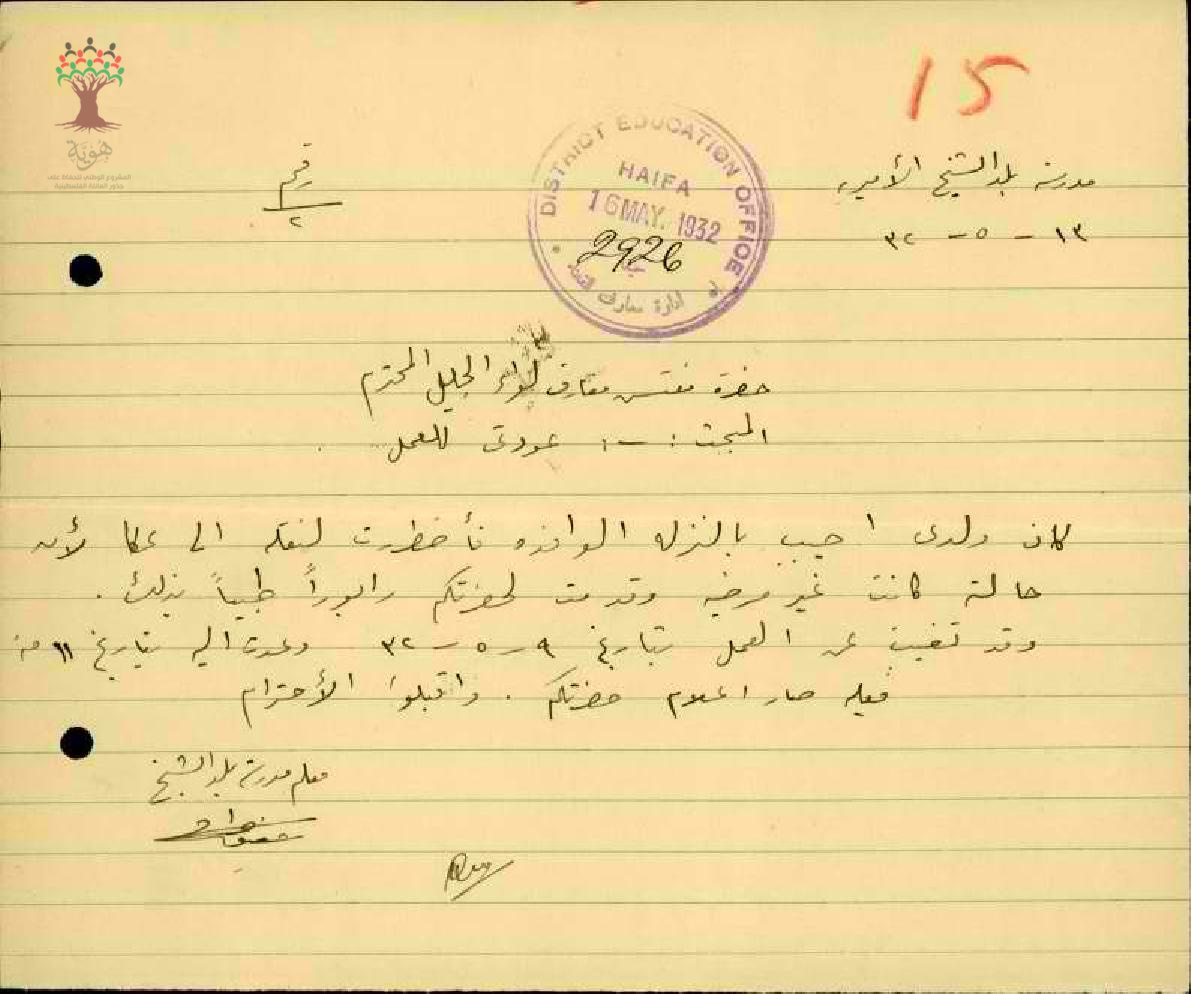 15
هوية
المشروع الوطني للحفاظ على
جذور العائلة الفلسطينية
DISTRICT EDUCATION OFFICE
HAIFA
16 MAY. 1932
2926
ادارة معارف
مدرسة بلد الشيخ الأميرية
١٣ - ٥ - ٣٢
رقم
٢
حضرة مفتش معارف لواء الجليل المحترم
المبحث :- عودتي للعمل
كان ولدي اصيب بالنزله الوافده فأضطررت لنقله الى عكا لأن
حالته كانت غير مرضيه وقدمت لحضرتكم رابوراً طبياً بذلك .
وقد تغيبت عن العمل بتاريخ ٩ - ٥ - ٣٢ وعدت اليه بتاريخ ١١ منه
فعليه صار اعلام حضرتكم . واقبلوا الأحترام
معلم مدرسة بلد الشيخ